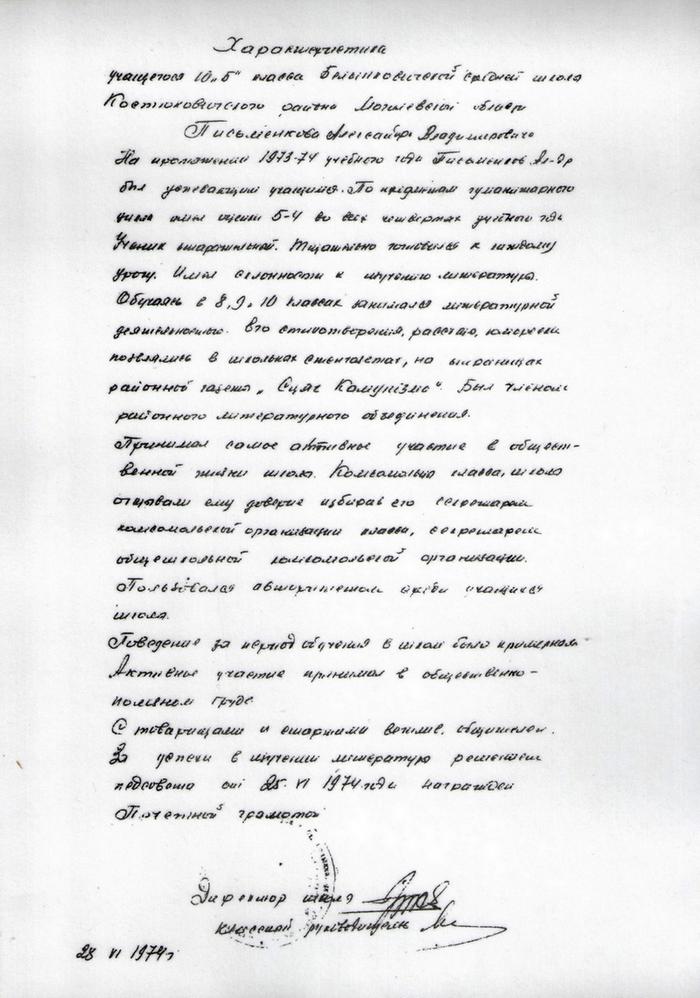 Характеристика
учащегося 10 „Б" класса Белынковичской средней школы
Костюковичского района Могилевской области
Письменкова Александра Владимировича
На протяжении 1973-74 учебного года Письменков Ал-др
был успевающим учащимся. По предметам гуманитарного
цикла имел оценки 5-4 во всех четвертях учебного года
Ученик старательный. Тщательно готовился к каждому
уроку. Имел склонности к изучению литературы.
Обучаясь в 8, 9, 10 классах занимался литературной
деятельностью. Его стихотворения, рассказы, юморески
появлялись в школьных стенгазетах, на страницах
районной газеты „Сцяг Камунізма". Был членом
районного литературного объединения.
Принимал самое активное участие в общест-
венной жизни школы. Комсомольцы класса, школы
оказывали ему доверие избирая его секретарем
комсомольской организации класса, секретарем
общешкольной комсомольской организации.
Пользовался авторитетом среди учащихся
школы.
Поведение за период обучения в школе было примерном.
Активное участие принимал в общественно-
полезном труде
С товарищами и старшими вежлив, общителен.
За успехи в изучении литературы решением
педсовета от 25 VI 1974 года награжден
Почетной грамотой
Директор школы
Классный руководитель
28 VI 1974 г